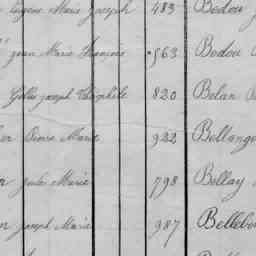 Eugène Marie Joseph 483 Bedou
Jean Marie François 563 Bedou
Gilles Joseph Théophile 820 Belan
Pierre Marie 922 Bellanger
Jules Marie 798 Bellay
Joseph Marie 987